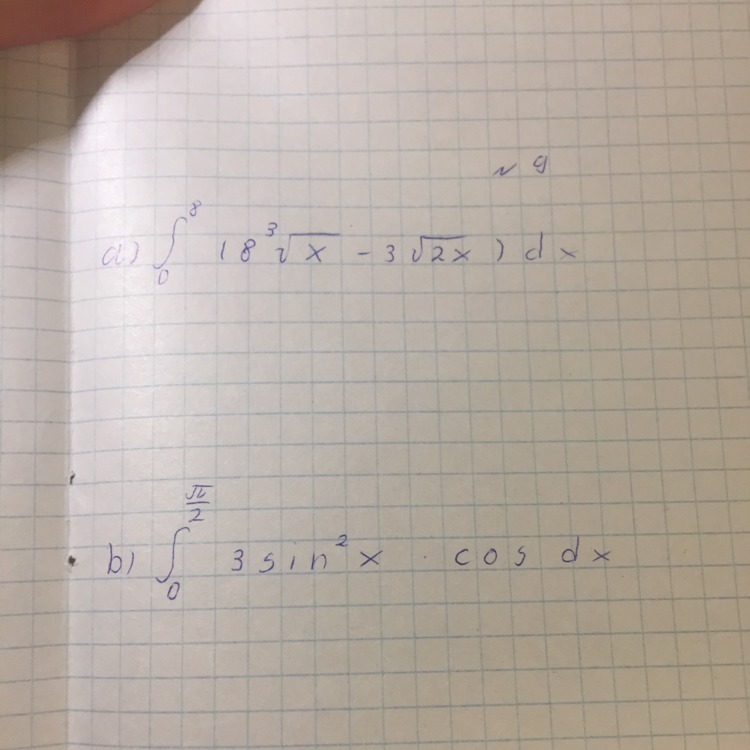 № 9
a) ∫₀⁸ (8 ³√x - 3√2x) dx
b) ∫₀^(π/2) 3 sin² x · cos dx